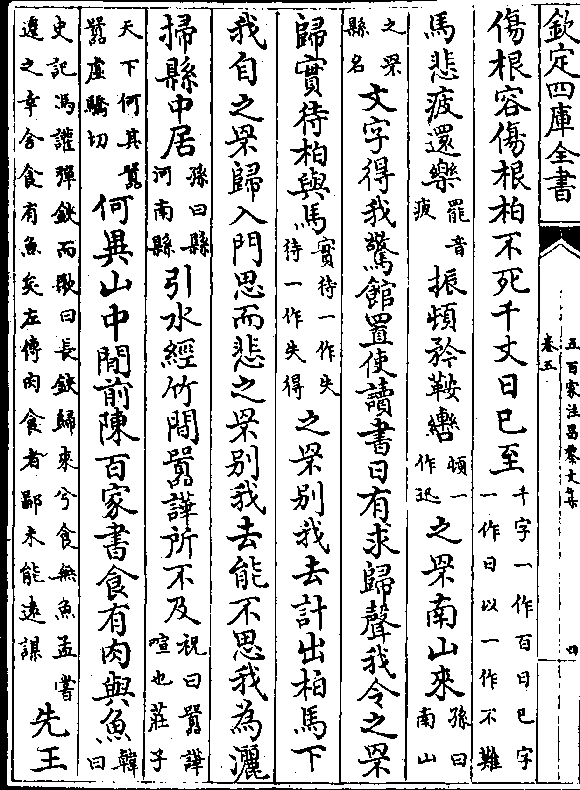 欽定四庫全書
五百家注昌黎文集
卷五
四
傷根容傷根柏不死千丈日已至千字一作百日已字一作日以一作不難
馬悲疲還樂罷音疲振頓矜鞍轡頓一作迅之罘南山來孫曰南山
之罘縣名文字得我驚館置使讀書日有求歸聲我令之罘
歸實待柏與馬實待一作失待一作失得之罘別我去計出柏馬下
我自之罘歸入門思而悲之罘別我去能不思我為灑
掃縣中居孫曰縣河南縣引水經竹間囂譁所不及祝曰囂譁喧也莊子
天下何其囂囂虛驕切何異山中閒前陳百家書食有肉與魚韓曰
史記馮讙彈鋏而歌曰長鋏歸來兮食無魚孟嘗遷之幸舍食有魚矣左傳肉食者鄙未能遠謀先王